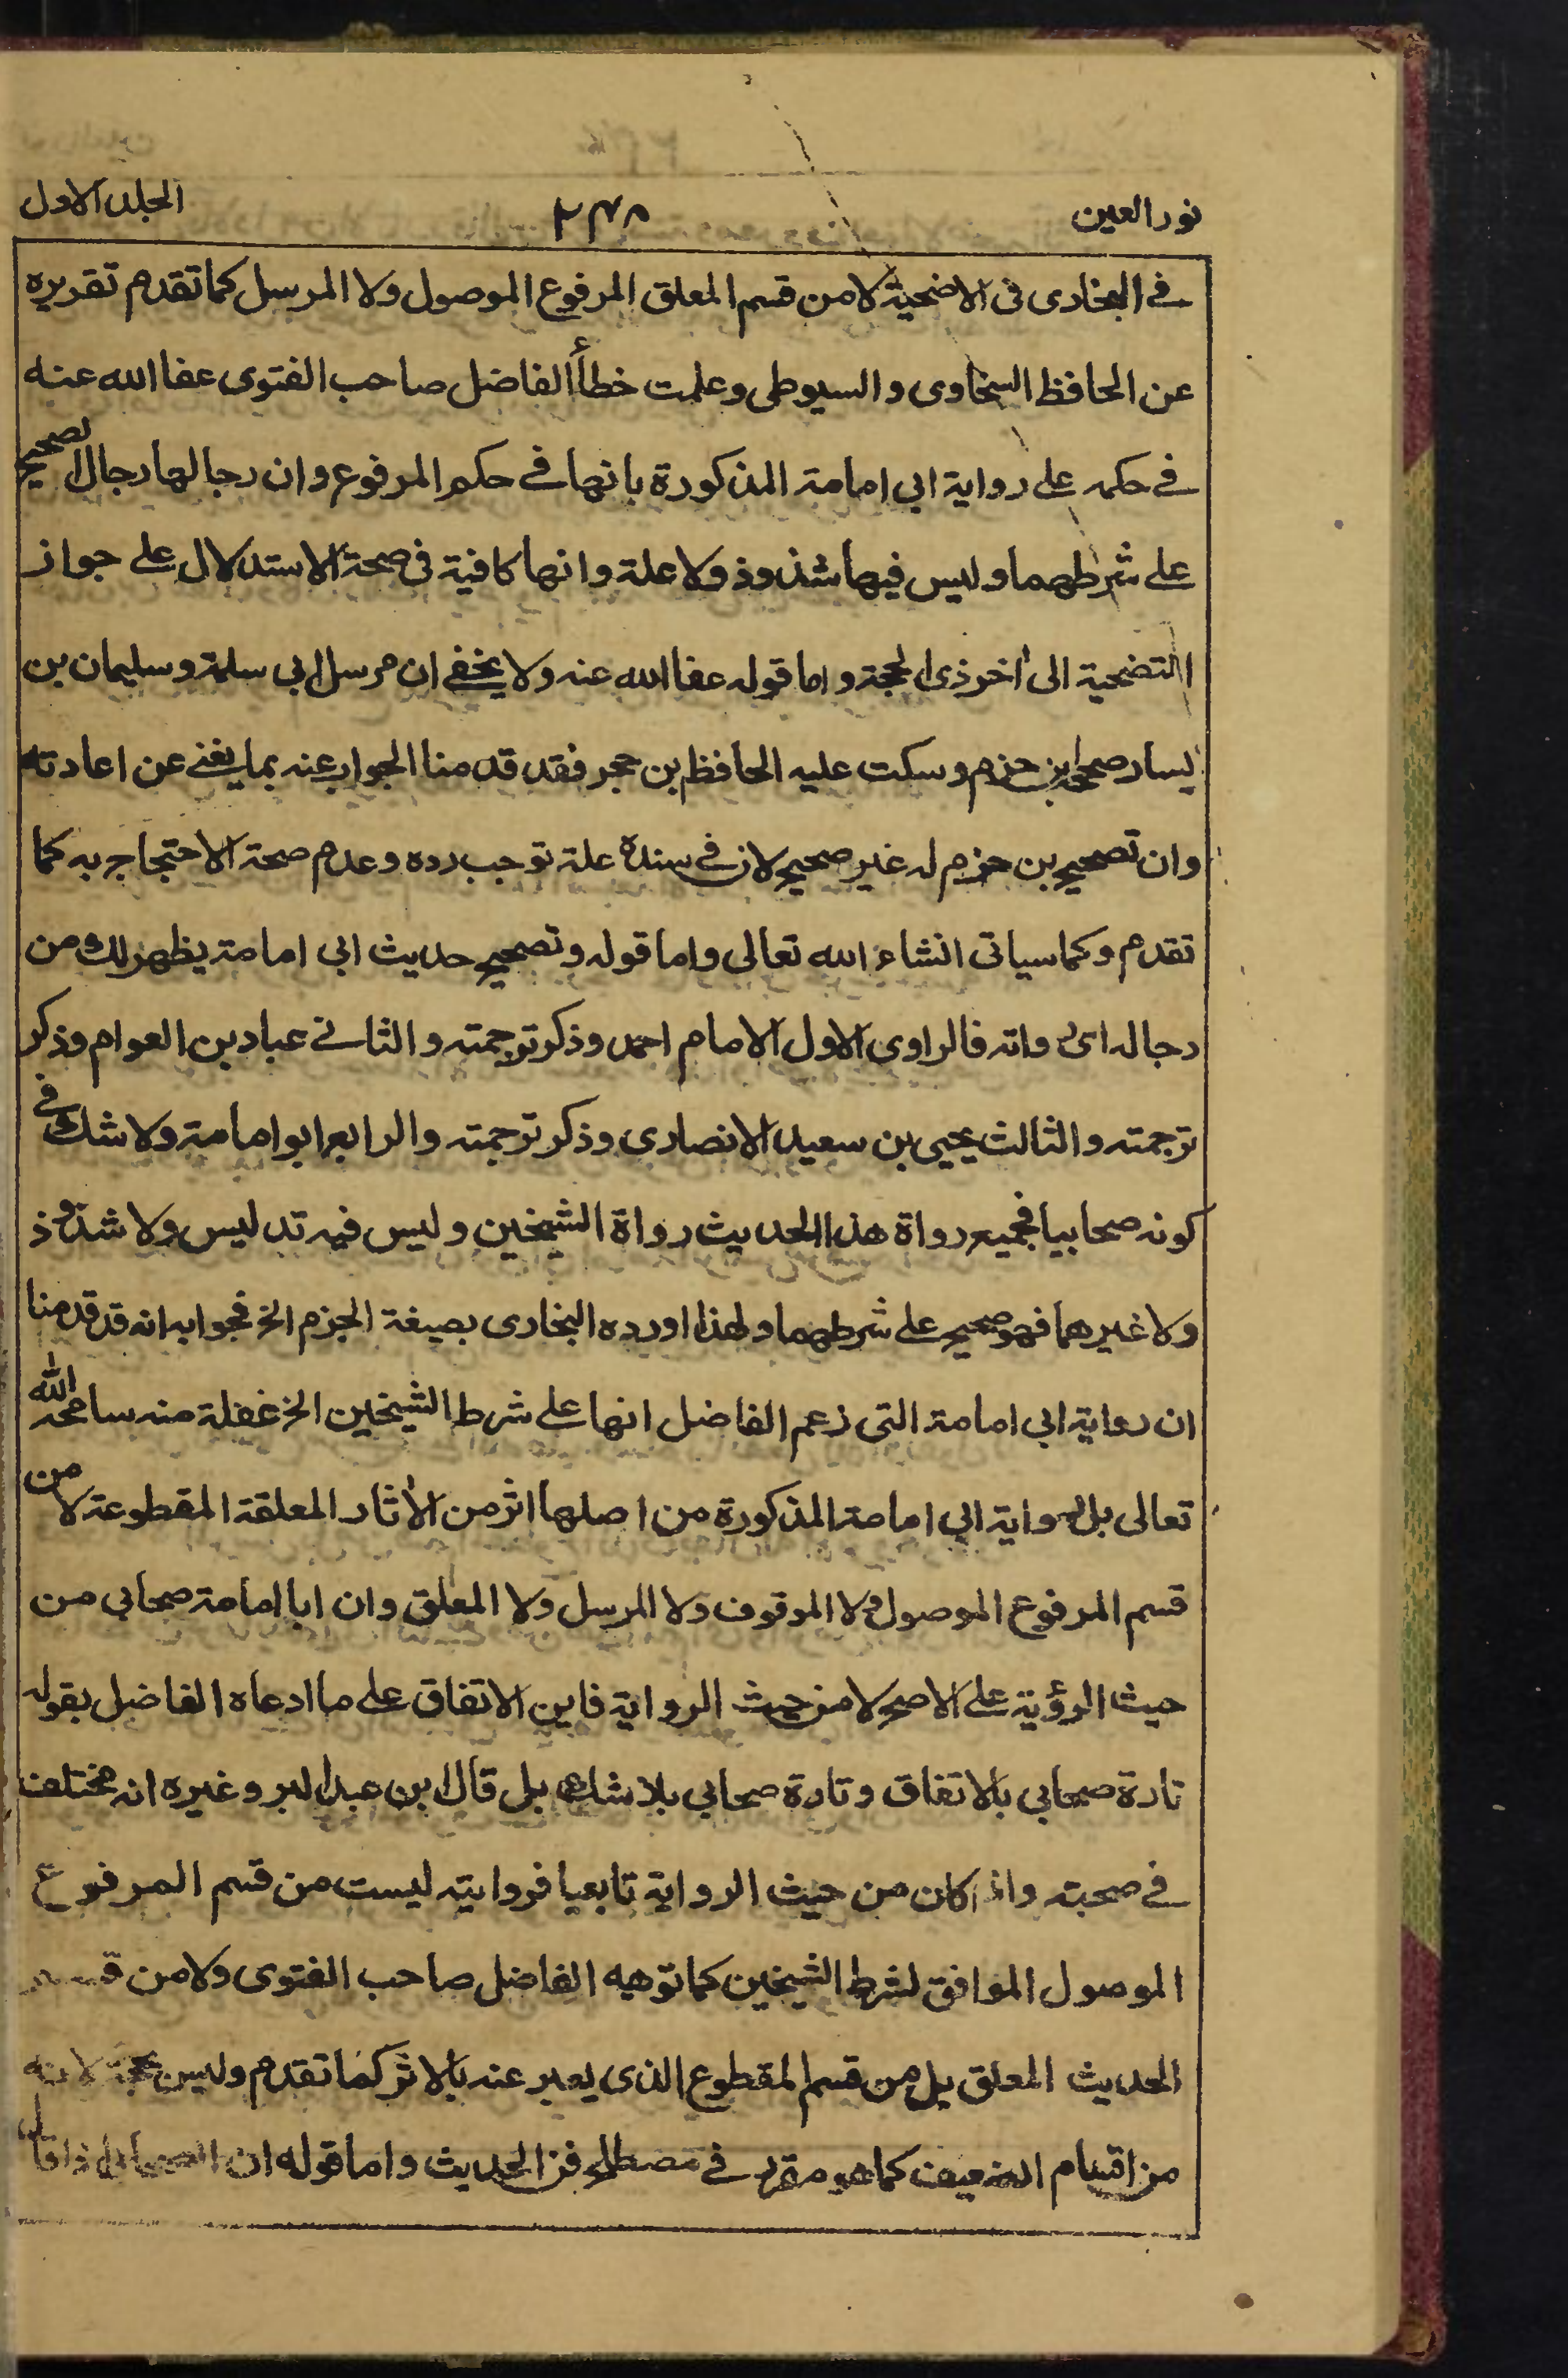 نور العين
٢٣٨
المجلد الاول
في البخاري في الاضحية لا من قسم المعلق المرفوع الموصول ولا المرسل كما تقدم تقريره
عن الحافظ السخاوى و السيوطى وعلمت خطأ الفاضل صاحب الفتوى عفا الله عنه
في حكمه على رواية ابى امامة المذكورة بانها في حكم المرفوع و ان رجالها رجال الصحيح
على شرطهما و ليس فيها شذوذ ولا علة و انها كافية فى صحة الاستدلال على جواز
التضحية الى اخر ذى الحجة و اما قوله عفا الله عنه ولا يخفى ان مرسل ابى سلمة و سليمان بن
يسار صححه ابن حزم و سكت عليه الحافظ بن حجر فقد قدمنا الجواب عنه بما يغني عن اعادته
وان تصحيح بن حزم له غير صحيح لان في سنده علة توجب رده و عدم صحة الاحتجاج به كما
تقدم وكما سياتى انشاء الله تعالى واما قوله و تصحيح حديث ابى امامة يظهر لك من
رجاله اى رواته فالراوى الاول الامام احمد وذكر ترجمته و الثانى عباد بن العوام و ذكر
ترجمته و الثالث يحيى بن سعيد الانصارى و ذكر ترجمته و الرابع ابو امامة ولا شك في
كونه صحابيا فجميع رواة هذا الحديث رواة الشيخين و ليس فيه تدليس ولا شذوذ
ولا غيرهما فهو صحيح على شرطهما و لهذا اورده البخارى بصيغة الجزم الخ فجوابه انه قد قدمنا
ان رواية ابى امامة التى زعم الفاضل انها على شرط الشيخين الخ غفلة منه سامحه الله
تعالى بل رواية ابى امامة المذكورة من اصلها اثر من الأثار المعلقة المقطوعة لا من
قسم المرفوع الموصول ولا الموقوف ولا المرسل ولا المعلق وان ابا امامة صحابى من
حيث الرؤية على الاصح لا من حيث الرواية فاين الاتفاق على ما ادعاه الفاضل بقوله
تارة صحابى بالاتفاق و تارة صحابى بلا شك بل قال ابن عبد البر و غيره انه مختلف
في صحبته واذا كان من حيث الرواية تابعيا فروايته ليست من قسم المرفوع
الموصول الموافق لشرط الشيخين كما توهمه الفاضل صاحب الفتوى ولا من قسم
الحديث المعلق بل من قسم المقطوع الذى يعبر عنه بالاثر كما تقدم وليس بحجة لانه
من اقسام الضعيف كما هو مقرر في مصطلح فن الحديث و اما قوله ان الصحابى اذا قال